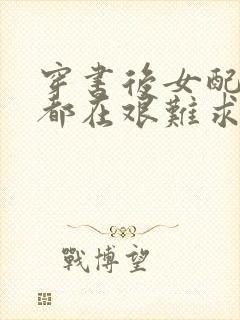 穿書後女配
都在艱難求
戰博望